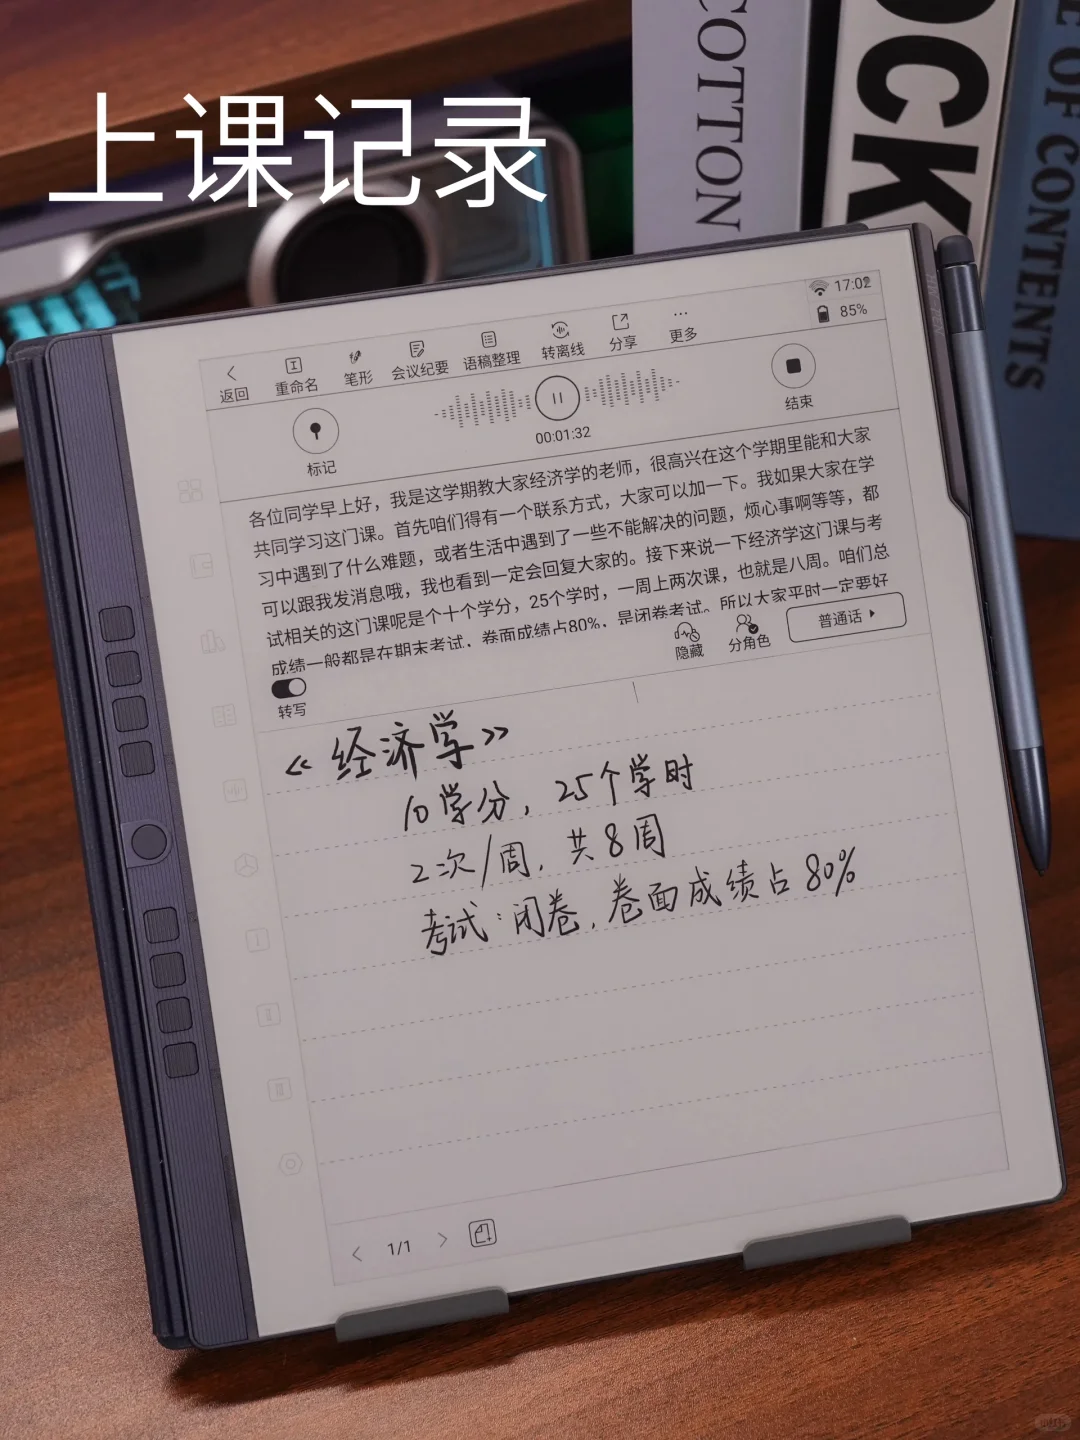 上课记录
COTTON
OCK
E OF CONTENTS
17:02
85%
返回
重命名
笔形
会议纪要
语稿整理
转离线
分享
更多
标记
00:01:32
结束
各位同学早上好，我是这学期教大家经济学的老师，很高兴在这个学期里能和大家
共同学习这门课。首先咱们得有一个联系方式，大家可以加一下。我如果大家在学
习中遇到了什么难题，或者生活中遇到了一些不能解决的问题，烦心事啊等等，都
可以跟我发消息哦，我也看到一定会回复大家的。接下来说一下经济学这门课与考
试相关的这门课呢是个十个学分，25个学时，一周上两次课，也就是八周。咱们总
成绩一般都是在期末考试，卷面成绩占80%，是闭卷考试。所以大家平时一定要好
转写
隐藏
分角色
普通话
《经济学》
10学分，25个学时
2次/周，共8周
考试：闭卷，卷面成绩占80%
1/1